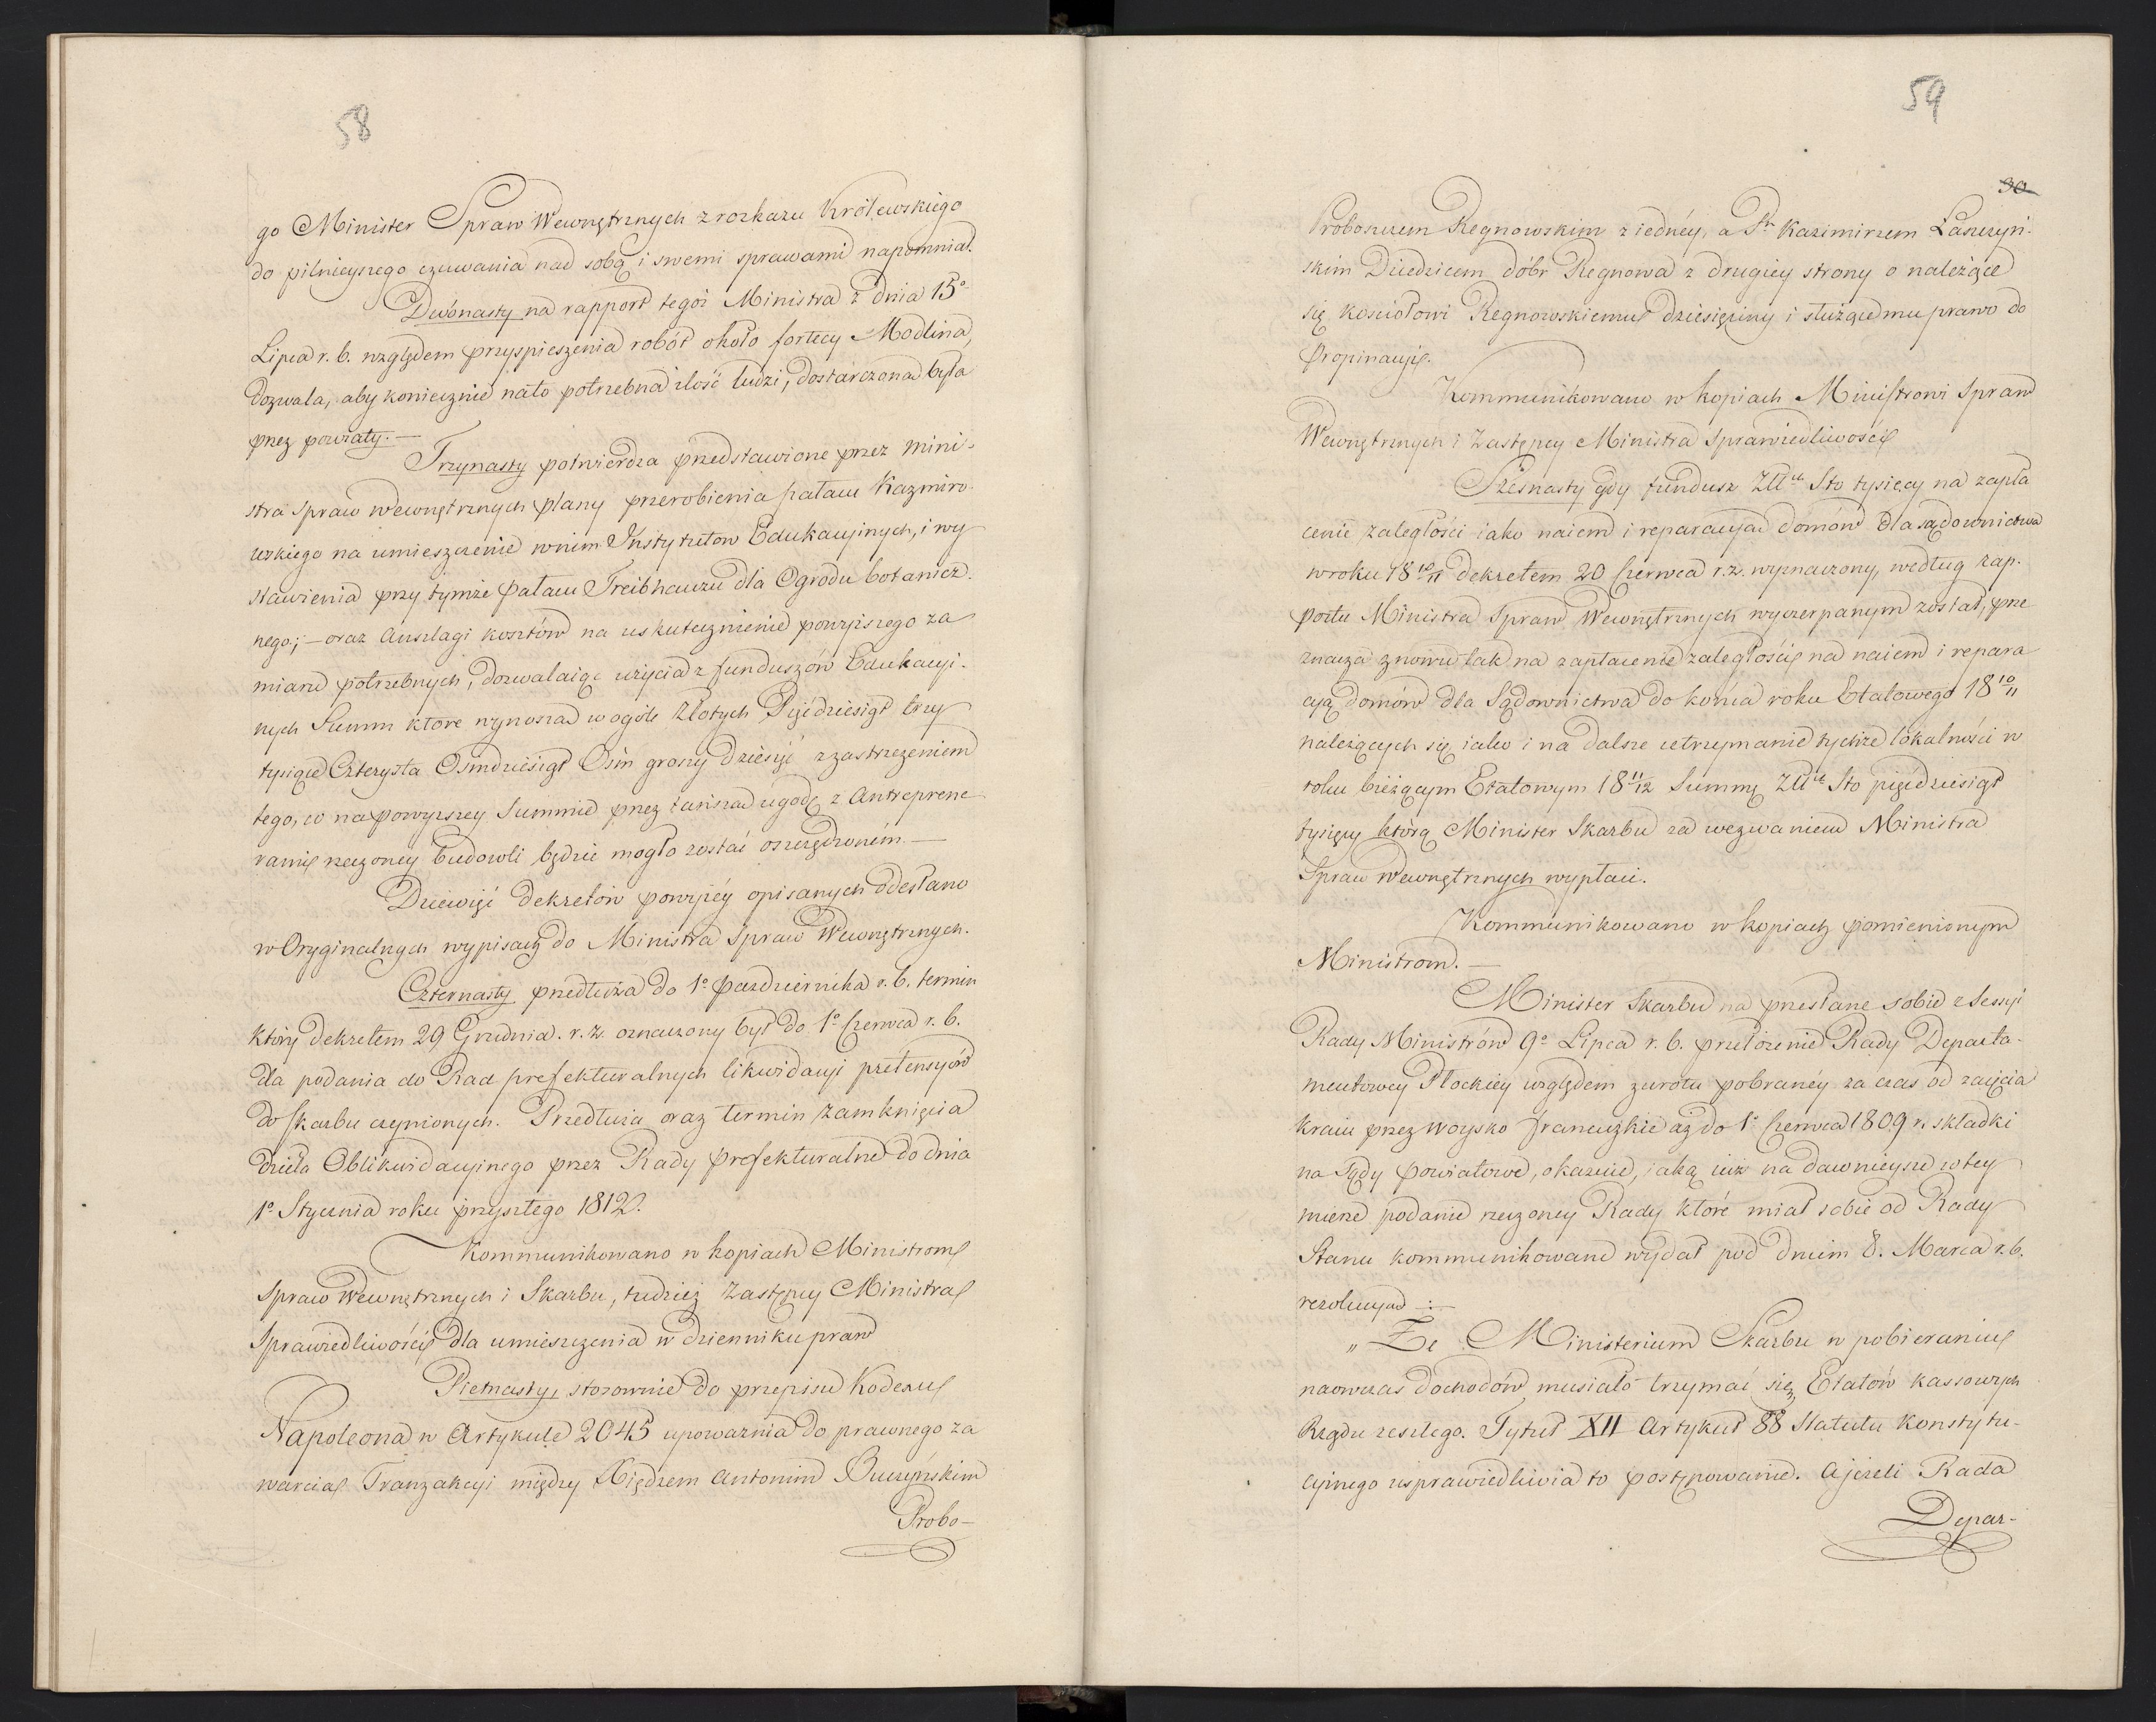 58
go Minister Spraw Wewnętrznych z rozkazu Królewskiego
do pilnieyszego czuwania nad sobą i swemi sprawami napomniał.
Dwónasty na rapport tegoż Ministra z dnia 15º
Lipca r. b. względem przyspieszenia robót około fortecy Modlina,
dozwala, aby koniecznie nato potrzebna ilość ludzi, dostarczona była
przez powiaty. —
Trzynasty potwierdza przedstawione przez Mini-
stra Spraw Wewnętrznych plany przerobienia pałacu Kazmiro-
wskiego na umieszczenie wnim Instytutow Edukacyinych, i wy
stawienia przy tymże Pałacu Treibhauzu dla Ogrodu botanicz-
nego; — oraz Anszlagi kosztów na uskutecznienie powyższego za
miaru potrzebnych, dozwalaiąc użycia z funduszów Edukacyi-
nych Summ które wynoszą w ogóle Złotych Pięćdziesiąt trzy
tysiące Czterysta Osmdziesiąt Ośm groszy dziesięć z zastrzeżeniem
tego, co na powyższey Summie przez tańszą ugodę z Antreprene-
rami rzeczoney budowli będzie mogło zostać oszczędzoném. —
Dziewięć dekretów powyżéy opisanych odesłano
w Oryginalnych wypisach do Ministra Spraw Wewnętrznych.
Czternasty przedłuża do 1º Października r. b. termin
który dekretem 29 Grudnia r. z. oznaczony był do 1º Czerwca r. b.
dla podania do Rad prefekturalnych likwidacyi pretensyów
do skarbu czynionych. Przedłuża oraz termin zamknięcia
dzieła Oblikwidacyinego przez Rady prefekturalne do dnia
1º Stycznia roku przyszłego 1812.
Kommunikowano w kopiach Ministrom
Spraw Wewnętrznych i Skarbu, tudzież Zastępcy Ministra
Sprawiedliwości dla umieszczenia w dzienniku praw
Pietnasty, stosownie do przepisu Kodexu
Napoleona w Artykule 2045 upoważnia do prawnego za
warcia Tranzakcyi między Xiędzem Antonim Buczyńskim
Probo-
59
30
Proboszczem Regnowskim z iednéy, a Pm Kazimirzem Łaszczyń-
skim Dziedzicem dóbr Regnowa z drugiey strony o należące
się kościołowi Regnowskiemu dziesięciny i służące mu prawo do
Propinacyi.
Kommunikowano w kopiach Ministrowi Spraw
Wewnętrznych i Zastępcy Ministra Sprawiedliwości
Szesnasty gdy fundusz Złłch Sto tysięcy na zapła
cenie zaległości iako naiem i reparacyą domów dla sądownictwa
w roku 18 10/11 dekretem 20 Czerwca r. z. wyznaczony, według rap-
portu Ministra Spraw Wewnętrznych wyczerpanym został, prze
znacza znowu tak na zapłacenie zaległości na naiem i repara
cyą domów dla Sądownictwa do końca roku Etatowego 18 10/11
należących się iako i na dalsze utrzymanie tychże lokalności w
roku bieżącym Etatowym 18 11/12 Summę Złłch Sto pięćdziesiąt
tysięcy którą Minister Skarbu za wezwaniem Ministra
Spraw Wewnętrznych wypłaci.
Kommunikowano w kopiach pomienionym
Ministrom. —
Minister Skarbu na przesłane sobie z Sessyi
Rady Ministrów 9º Lipca r. b. przełożenie Rady Departa-
mentowey Płockiey względem zwrotu pobranéy za czas od zaięcia
kraiu przez Woysko francuzkie aż do 1º Czerwca 1809 r. składki
na Sądy powiatowe, okazuie, iaką iuż na dawnieysze w tey
mierze podanie rzeczoney Rady które miał sobie od Rady
Stanu kommunikowane wydał pod dniem 8. Marca r. b.
rezolucyą —:
„ Że Ministerium Skarbu w pobieraniu
naówczas dochodów musiało trzymać się, Etatów kassowych
Rządu zeszłego. Tytuł XII Artykuł 88 Statutu Konstytu-
cyinego usprawiedliwia to postępowanie. A jeżeli Rada
Depar-